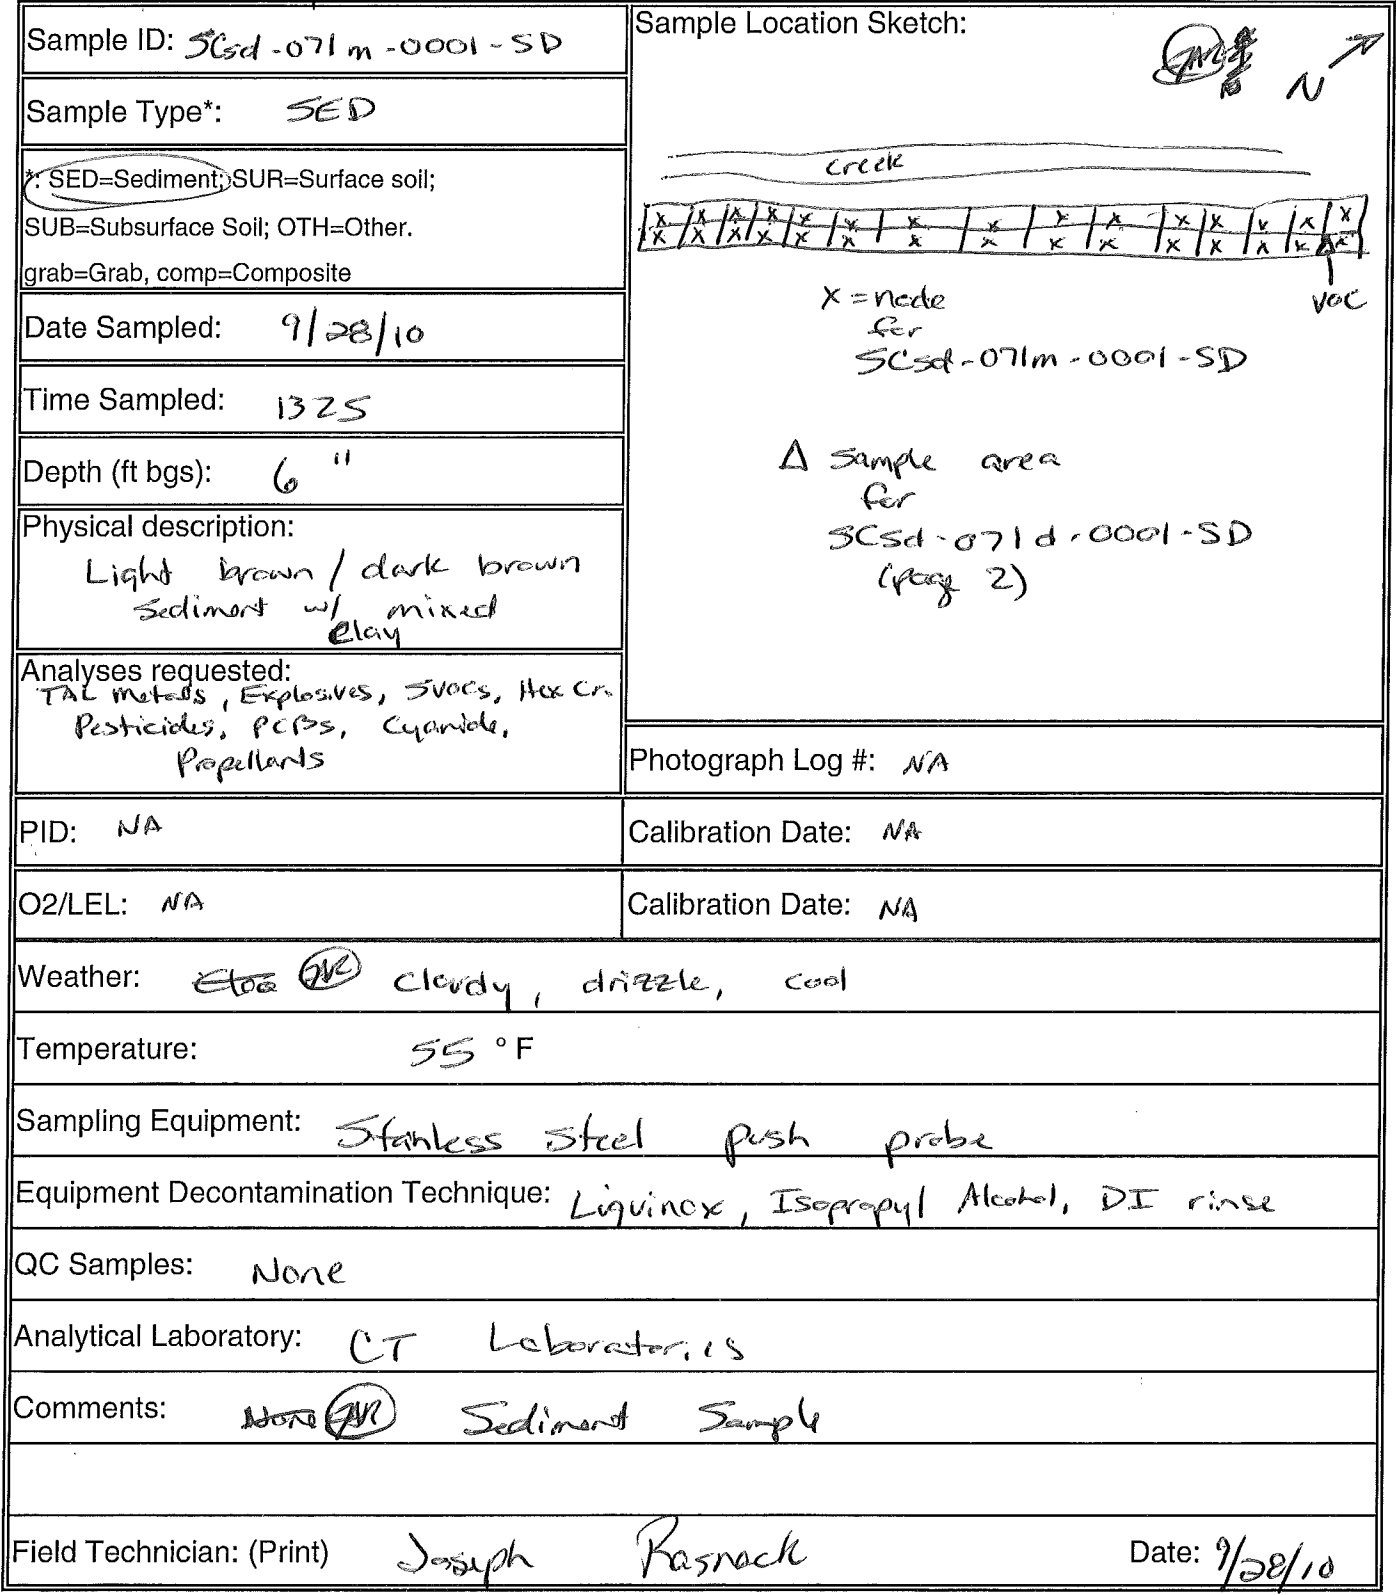 Sample ID: SCsd-071m-0001-SD
Sample Type*: SED
*: SED=Sediment; SUR=Surface soil;
SUB=Subsurface Soil; OTH=Other.
grab=Grab, comp=Composite
Date Sampled: 9/28/10
Time Sampled: 1325
Depth (ft bgs): 6"
Physical description:
Light brown / dark brown
sediment w/ mixed
clay
Analyses requested:
TAL Metals, Explosives, SVOCs, Hex Cr.
Pesticides, PCBs, Cyanide,
Propellants
Sample Location Sketch:
JR
N
creek
x x x x x x x x x x x x x x x
x x x x x x x x x x x x x x x
VOC
X = node
for
SCsd-071m-0001-SD
Δ sample area
for
SCsd-071d-0001-SD
(page 2)
Photograph Log #: NA
PID: NA
Calibration Date: NA
O2/LEL: NA
Calibration Date: NA
Weather: JR Cloudy, drizzle, cool
Temperature: 55 °F
Sampling Equipment: Stainless steel push probe
Equipment Decontamination Technique: Liquinox, Isopropyl Alcohol, DI rinse
QC Samples: None
Analytical Laboratory: CT Laboratories
Comments: None JR Sediment Sample
Field Technician: (Print) Joseph Rasnack Date: 9/28/10